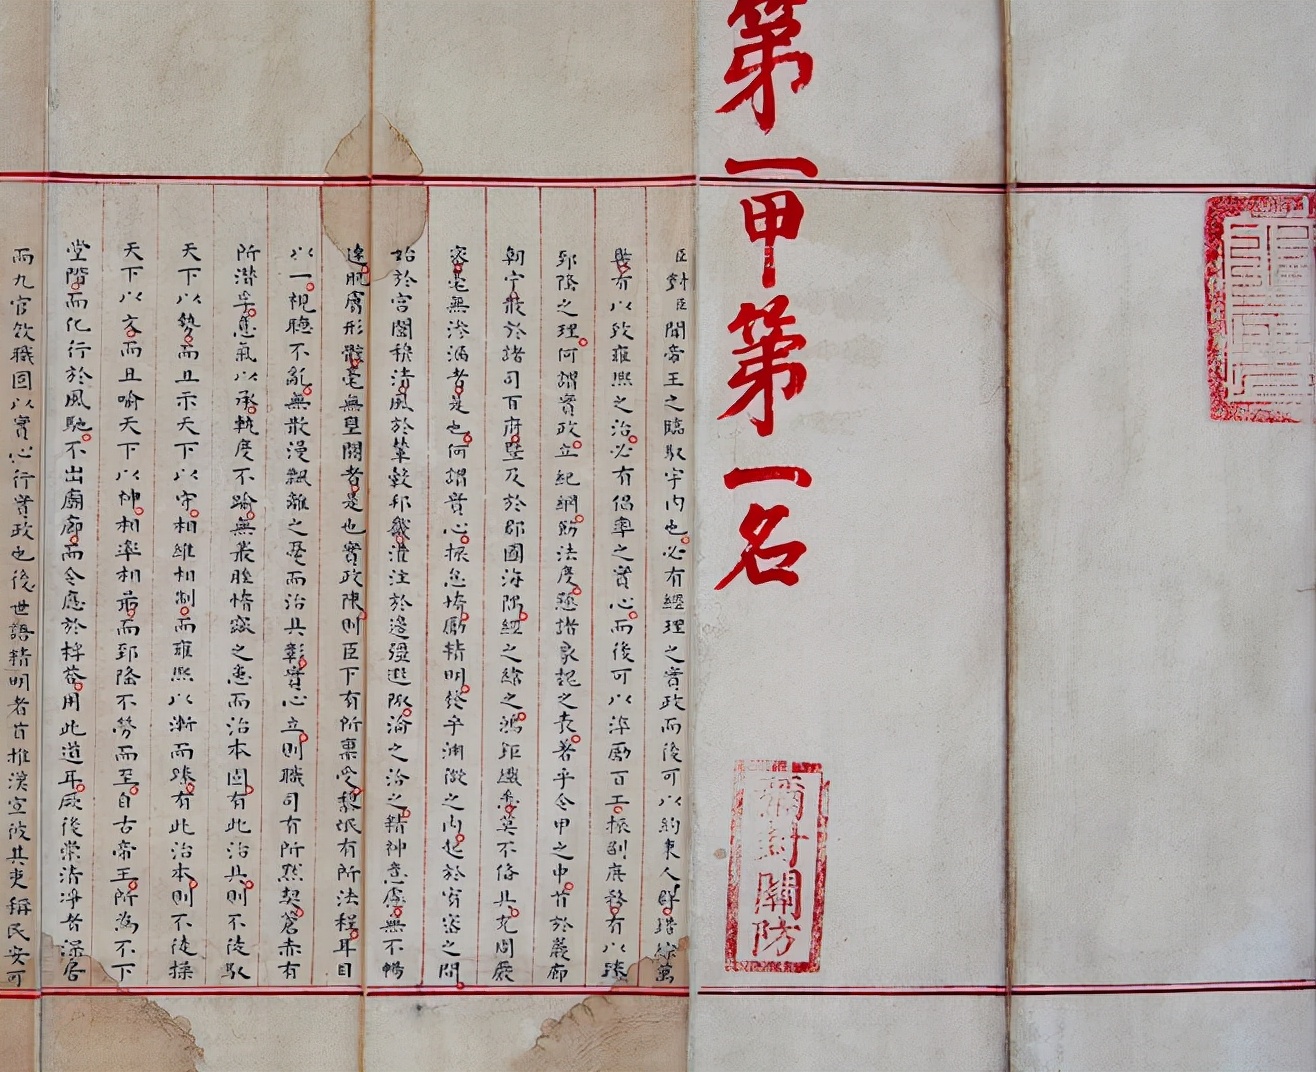 第一甲第一名
彌封關防
臣對臣聞帝王之臨馭宇內也必有經理之實政而後可以約束人群錯綜萬
機有以致雍熙之治必有倡率之實心而後可以淬勵百工振刷庶務有以臻
郅隆之理何謂實政立紀綱飭法度懸諸象魏之表著乎令甲之中首於巖廊
朝宁散於諸司百府暨及於郡國海隅經之緯之鴻鉅纖悉莫不備具充周嚴
密毫無滲漏者是也何謂實心振怠惰勵精明發乎淵微之內起於宥密之間
始於宮闈穆清風於輦轂邦畿灌注於邊疆遐陬淪之洽之精神意慮無不暢
達肌膚形骸毫無壅閼者是也實政陳則臣下有所稟令黎氓有所法程耳目
以一視聽不亂無散漫飄離之憂而治具彰實心立則職司有所默契蒼赤有
所潛孚意氣以承軌度不踰無叢脞惰窳之患而治本固有此治具則不徒馭
天下以勢而且示天下以守相維相制而雍熙以漸而臻有此治本則不徒操
天下以文而且喻天下以神相率相勗而郅隆不勞而至自古帝王所為不下
堂階而化行於風馳不出廟廊而令應於桴答用此道耳厥後崇清淨者深居
而九官效職固以實心行實政也後世語精明者首推漢宣彼其吏稱民安可